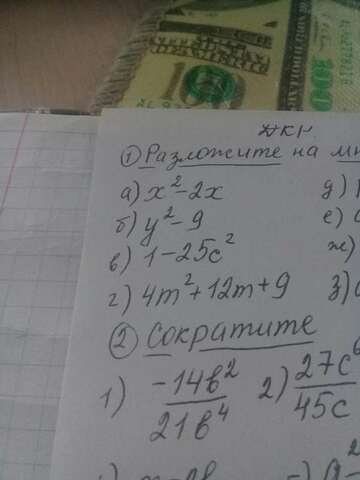 ДКР
① Разложите на мн
а) x²-2x
д)
б) y²-9
е)
в) 1-25c²
ж)
г) 4m²+12m+9
з)
② Сократите
1) -14b²/21b⁴ 2) 27c⁶/45c